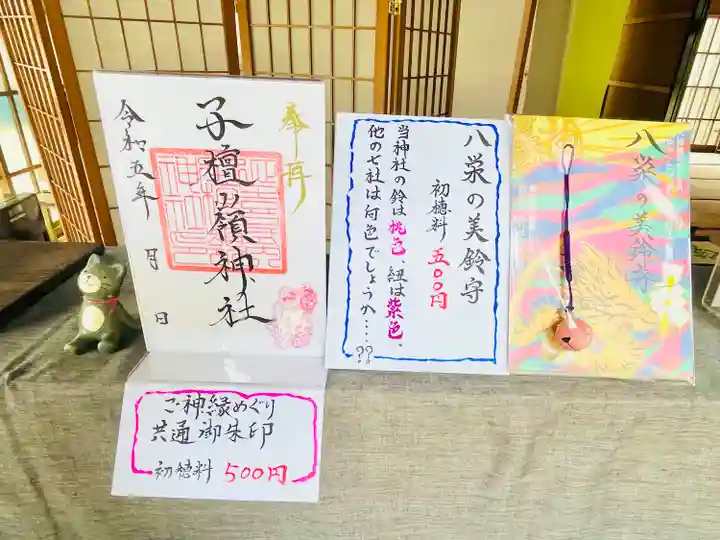 奉拝
子檀嶺神社
令和五年 月 日
ご神縁めぐり
共通御朱印
初穂料 500円
八栄の美鈴守
初穂料 五〇〇円
当神社の鈴は桃色、紐は紫色、
他の七社は何色でしょうか・・・・??
八栄の美鈴守